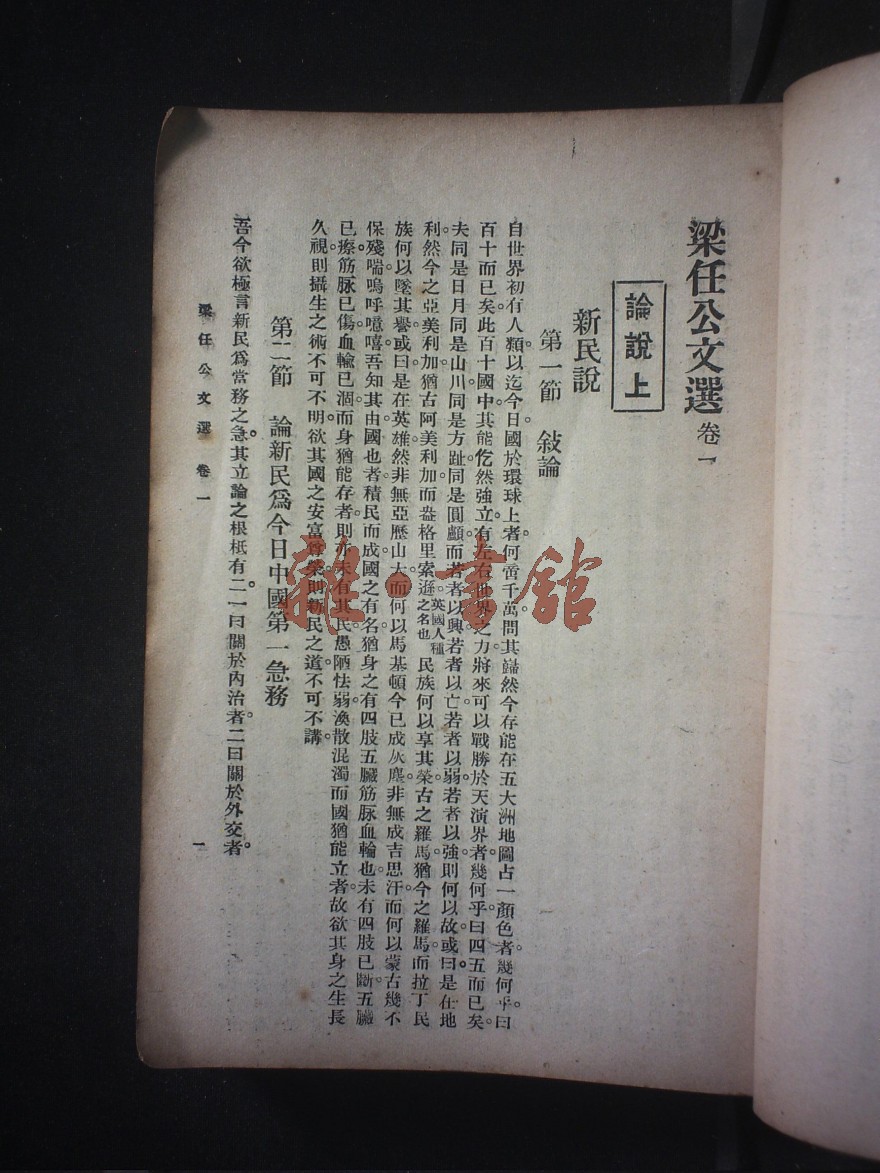 梁任公文選 卷一
論說上
新民說
第一節 敍論
自世界初有人類以迄今日。國於環球上者。何啻千萬問其巋然今存能在五大洲地圖占一顏色者。幾何乎。曰
百十而已矣。此百十國中其能屹然強立。有左右世界之力將來可以戰勝於天演界者。幾何乎。曰四五而已矣。
夫同是日月同是山川同是方趾同是圓顱。而若者以興若者以亡若者以弱若者以強則何以故。或曰。是在地
利然今之亞美利加猶古阿美利加而盎格里索遜英國人種之名也民族何以享其榮。古之羅馬猶今之羅馬。而拉丁民
族何以墜其譽。或曰是在英雄然非無亞歷山大而何以馬基頓今已成灰塵。非無成吉思汗。而何以蒙古幾不
保殘喘。嗚呼噫嘻。吾知其由國也者。積民而成國之有民猶身之有四肢五臟筋脉血輪也。未有四肢已斷五臟
已瘵。筋脉已傷。血輪已涸。而身猶能存者。則亦未有其民愚陋怯弱。渙散混濁而國猶能立者。故欲其身之生長
久視。則攝生之術不可不明。欲其國之安富尊榮則新民之道。不可不講。
第二節 論新民爲今日中國第一急務
吾今欲極言新民爲當務之急。其立論之根柢有二一曰關於內治者。二曰關於外交者。
梁任公文選 卷一
一
雜·書館